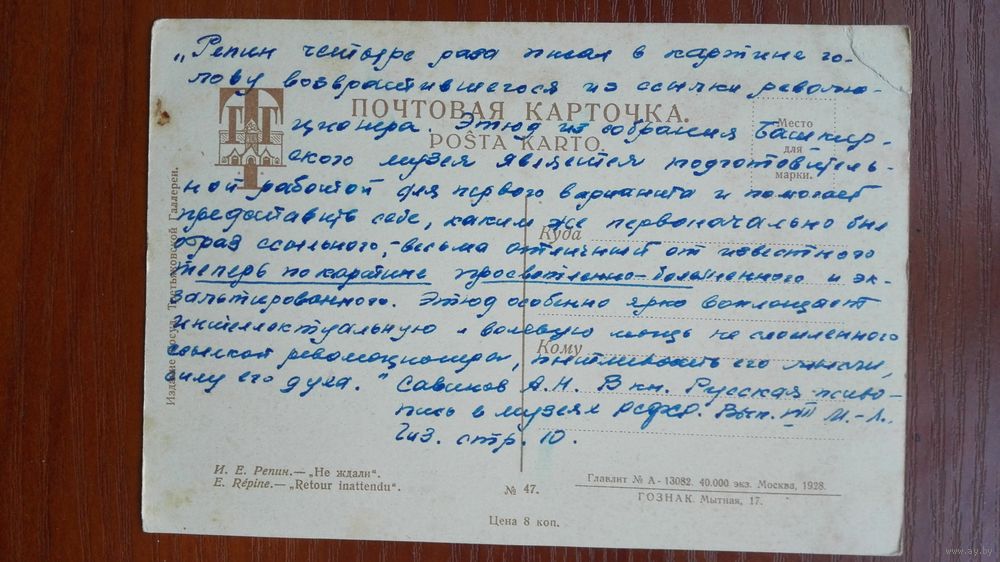 „Репин четыре раза писал в картине го-
лову возвратившегося из ссылки револю-
ционера. Этюд из собрания Башкир-
ского музея является подготовитель-
ной работой для первого варианта и помогает
представить себе, каким же первоначально был
образ ссыльного, – весьма отличный от известного
теперь по картине просветленно-болезненного и эк-
зальтированного. Этюд особенно ярко воплощает
интеллектуальную и волевую мощь не сломленного
ссылкой революционера, его мысли,
силу его духа." Савинов А.Н. В кн. Русская живо-
пись в музеях РСФСР. Вып. VIII М.-Л.
Гиз. стр. 10.
ПОЧТОВАЯ КАРТОЧКА.
POŜTA KARTO.
Место
для
марки.
Куда
Кому
Издание Госуд. Третьяковской Галлереи.
И. Е. Репин.— „Не ждали".
E. Répine.— „Retour inattendu".
№ 47.
Цена 8 коп.
Главлит № А - 13082. 40.000 экз. Москва, 1928.
ГОЗНАК. Мытная, 17.
www.ay.by